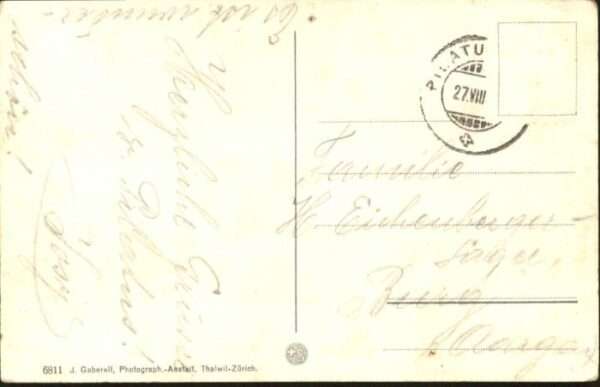 Es ist wunder-
schön!
Herzliche Grüsse
v. Pilatus!
Josy
PILATU
27.VIII
Familie
H. Eichenberger-
Burg
Aargau
6811 J. Gaberell, Photograph.-Anstalt, Thalwil-Zürich.